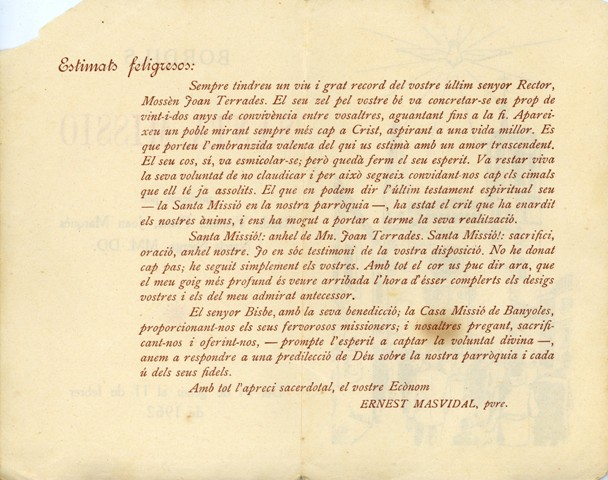 Estimats feligresos:
Sempre tindreu un viu i grat record del vostre últim senyor Rector,
Mossèn Joan Terrades. El seu zel pel vostre bé va concretar-se en prop de
vint-i-dos anys de convivència entre vosaltres, aguantant fins a la fi. Aparei-
xeu un poble mirant sempre més cap a Crist, aspirant a una vida millor. Es
que porteu l'embranzida valenta del qui us estimà amb un amor trascendent.
El seu cos, si, va esmicolar-se; però quedà ferm el seu esperit. Va restar viva
la seva voluntat de no claudicar i per això segueix convidant-nos cap els cimals
que ell té ja assolits. El que en podem dir l'últim testament espiritual seu
— la Santa Missió en la nostra parròquia —, ha estat el crit que ha enardit
els nostres ànims, i ens ha mogut a portar a terme la seva realització.
Santa Missió!: anhel de Mn. Joan Terrades. Santa Missió!: sacrifici,
oració, anhel nostre. Jo en sóc testimoni de la vostra disposició. No he donat
cap pas; he seguit simplement els vostres. Amb tot el cor us puc dir ara, que
el meu goig més profund és veure arribada l'hora d'ésser complerts els desigs
vostres i els del meu admirat antecessor.
El senyor Bisbe, amb la seva benedicció; la Casa Missió de Banyoles,
proporcionant-nos els seus fervorosos missioners; i nosaltres pregant, sacrifi-
cant-nos i oferint-nos, — prompte l'esperit a captar la voluntat divina —,
anem a respondre a una predilecció de Déu sobre la nostra parròquia i cada
ú dels seus fidels.
Amb tot l'apreci sacerdotal, el vostre Ecònom
ERNEST MASVIDAL, pvre.